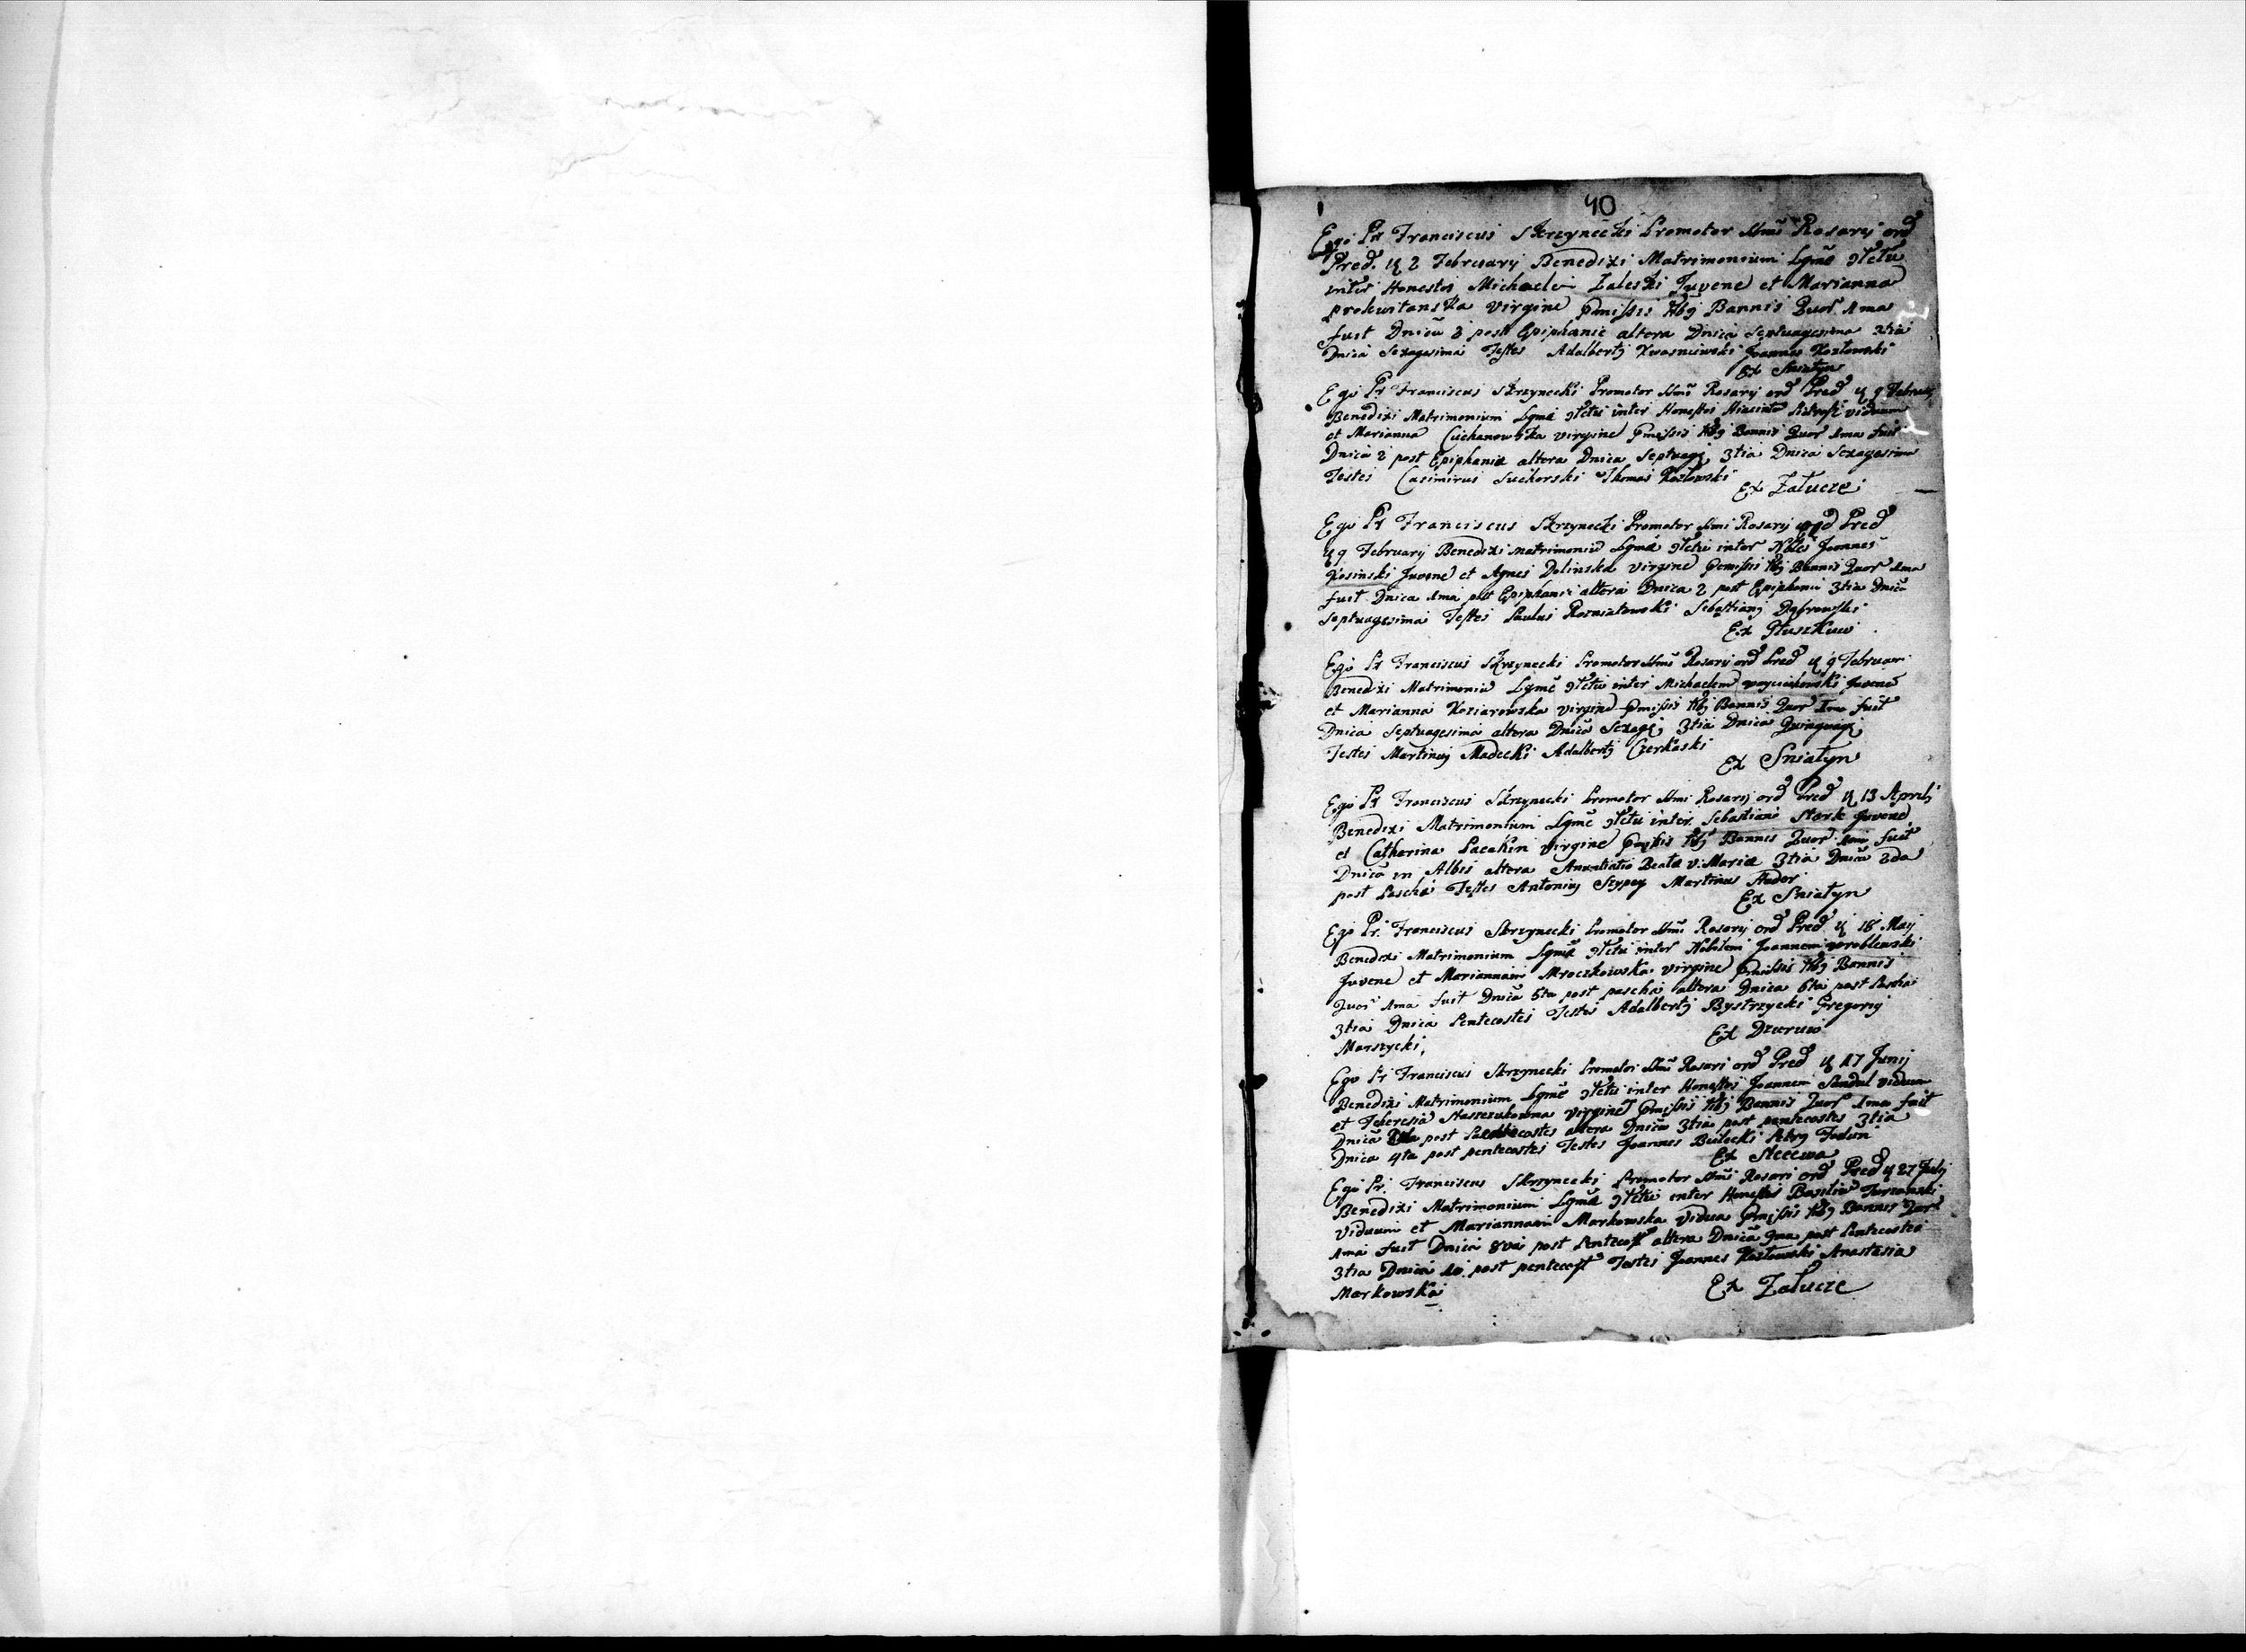 40
Ego Pr Franciscus Skrzynecki Promotor Ssmi Rosarij ord
Pred. 2 February Benedixi Matrimonium Lgme
inter Honestos Michaelem Zaleski Juvene et Marianna
prokuitanska virgine pmissis Bannis Quor 1ma
fuit Dnica 2 post Epiphanie altera Dnica Septuagesima 3tia
Dnica Sexagesima Testes Adalbertq Kwasniewski Joannes Kozlowski
Ex Sniatyn
Ego Pr Franciscus Skrzynecki Promotor Ssmi Rosarij ord Pred 9 February
Benedixi Matrimonium Lgme inter Honestos Hiacinto viduum
et Marianna Ciechanowska virgine pmissis Bannis Quor 1ma fuit
Dnica 2 post Epiphania altera Dnica Septuag; 3tia Dnica Sexagesima
Testes Casimirus Suchorski Thomas Kozlowski
Ex Załucze
Ego Pr Franciscus Skrzynecki Promotor Ssmi Rosarij ord Pred
9 February Benedixi matrimoniu Lgme inter Nobles Joannes
Kosinski Juvene et Agnes Dolinska virgine pmissis Bannis Quor 1ma
fuit Dnica 1ma post Epiphanie altera Dnica 2 post Epiphanie 3tia Dnica
Septuagesima Testes Paulus Rozniatowski Sebastianq Dąbrowski
Ex Płuszkuw
Ego Pr Franciscus Skrzynecki Promotor Ssmi Rosarij ord Pred 9 Februari
Benedixi Matrimoniu Lgme inter Michaelem woyciechowski Juvene
et Marianna Koziarowska virgine pmissis Bannis Quor 1ma fuit
Dnica Septuagesima altera Dnica Sexag; 3tia Dnica Quinquag;
Testes Martinq Madecki Adalbertq Czerkaski
Ex Sniatyn
Ego Pr Franciscus Skrzynecki Promotor Ssmi Rosarij ord Pred 13 Aprilj
Benedixi Matrimonium Lgme inter Sebastiano Stark Juvene
et Catharina virgine pmissis Bannis Quor 1ma fuit
Dnica in Albis altera Anuntiatio Beata v. Maria 3tia Dnica 2da
post Pascha Testes Antonius Martinus
Ex Sniatyn
Ego Pr. Franciscus Skrzynecki Promotor Ssmi Rosarij ord Pred 18 Maij
Benedixi Matrimonium Lgme inter Nobilem Joannem wroblewski
Juvene et Mariannam Mroczkowska virgine pmissis Bannis
Quor 1ma fuit Dnica 5ta post pascha altera Dnica 6ta post Pascha
3tia Dnica Pentecostes Testes Adalbertq Bystrzycki Gregorij
Marszycki,
Ex Dzuruw
Ego Pr Franciscus Skrzynecki Promotor Ssmi Rosari ord Pred 17 Junij
Benedixi Matrimonium Lgme inter Honestos Joannem viduum
et Theresia virgine pmissis Bannis Quor 1ma fuit
Dnica post Pentecostes altera Dnica 3tia post pentecostes 3tia
Dnica 4ta post pentecostes Testes Joannes Bielecki
Ex Stecewa
Ego Pr. Franciscus Skrzynecki Promotor Ssmi Rosari ord Pred 27 Julij
Benedixi Matrimonium Lgme inter Honestos Basiliu Turzanski
Viduum et Mariannam Markowska Vidua pmissis Bannis Quor
1ma fuit Dnica 8va post Pentecost altera Dnica 9na post Pentecostes
3tia Dnica 10 post pentecost Testes Joannes Kozlowski Anastasia
Markowska
Ex Załucze